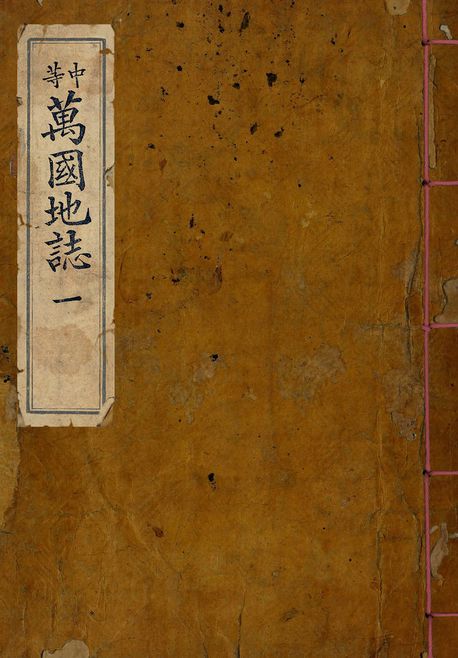 中等
萬國地誌
一